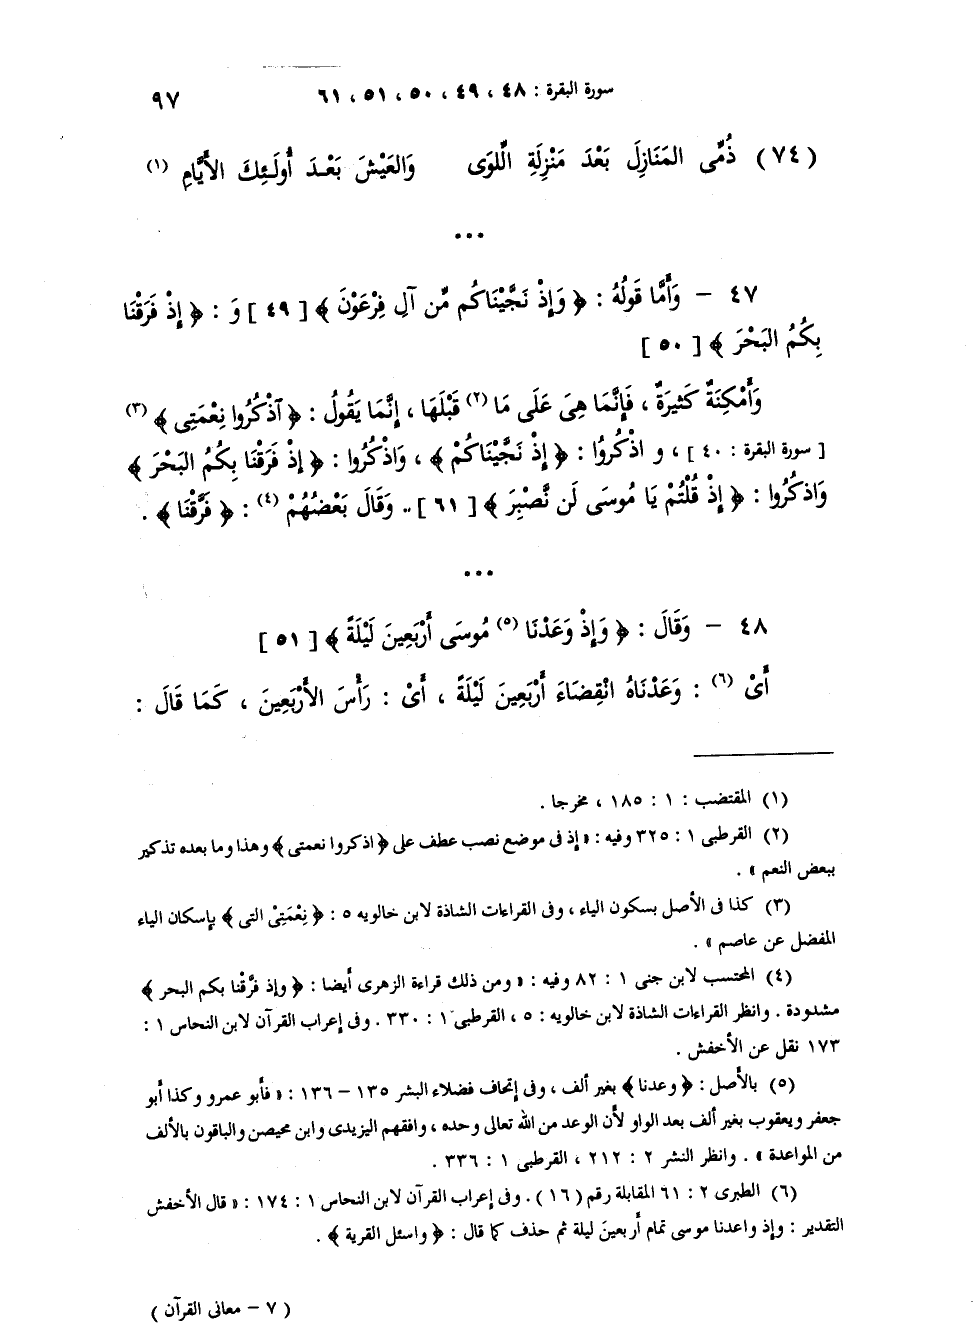 سورة البقرة : ٤٨ ، ٤٩ ، ٥٠ ، ٥١ ، ٦١ ٩٧
(٧٤) ذُمِّى المَنَازِلَ بَعْدَ مَنْزِلَةِ الَّلوَى وَالعَيْشَ بَعْدَ أُولَـٰئِكَ الأَيَّامِ (١)
...
٤٧ – وَأَمَّا قَوْلُهُ : ﴿ وَإِذْ نَجَّيْنَاكُم مِّن آلِ فِرْعَوْنَ ﴾ [ ٤٩ ] وَ : ﴿ إِذْ فَرَقْنَا
بِكُمُ البَحْرَ ﴾ [ ٥٠ ]
وَأَمْكِنَةٌ كَثِيرَةٌ ، فَإِنَّمَا هِىَ عَلَى مَا (٢) قَبْلَهَا ، إِنَّمَا يَقُولُ : ﴿ آذْكُرُوا نِعْمَتِى ﴾ (٣)
[ سورة البقرة : ٤٠ ] ، و اذْكُرُوُا : ﴿ إِذْ نَجَّيْنَاكُمْ ﴾ ، وَاذْكُرُوا : ﴿ إذ فَرَقْنَا بِكُمُ البَحْرَ ﴾
وَاذكُرُوا : ﴿ إِذْ قُلْتُمْ يَا مُوسَى لَن نَّصْبِرَ ﴾ [ ٦١ ] .. وَقَالَ بَعْضُهُمْ (٤) : ﴿ فَرَّقْنَا ﴾ .
...
٤٨ – وَقَالَ : ﴿ وَإِذْ وَعَدْنَا (٥) مُوسَى أَرْبَعِينَ لَيْلَةً ﴾ [ ٥١ ]
أَىْ (٦) : وَعَدْنَاهُ انْقِضَاءَ أَرْبَعِينَ لَيْلَةً ، أَىْ : رَأْسَ الأَرْبَعِينَ ، كَمَا قَالَ :
(١) المقتضب : ١ : ١٨٥ ، مخرجا .
(٢) القرطبى ١ : ٣٢٥ وفيه : « إذ فى موضع نصب عطف على ﴿ اذكروا نعمتى ﴾ وهذا وما بعده تذكير
ببعض النعم » .
(٣) كذا فى الأصل بسكون الياء ، وفى القراءات الشاذة لابن خالويه ٥ : ﴿ نِعْمَتِىْ التى ﴾ بإسكان الياء
المفضل عن عاصم » .
(٤) المحتسب لابن جنى ١ : ٨٢ وفيه : « ومن ذلك قراءة الزهرى أيضا : ﴿ وإذ فرَّقْنا بكم البحر ﴾
مشدودة . وانظر القراءات الشاذة لابن خالويه : ٥ ، القرطبى ١ : ٣٣٠ . وفى إعراب القرآن لابن النحاس ١ :
١٧٣ نقل عن الأخفش .
(٥) بالأصل : ﴿ وعدنا ﴾ بغير ألف ، وفى إتحاف فضلاء البشر ١٣٥ – ١٣٦ : « فأبو عمرو وكذا أبو
جعفر ويعقوب بغير ألف بعد الواو لأن الوعد من الله تعالى وحده ، وافقهم اليزيدى وابن محيصن والباقون بالألف
من المواعدة » . وانظر النشر ٢ : ٢١٢ ، القرطبى ١ : ٣٣٦ .
(٦) الطبرى ٢ : ٦١ المقابلة رقم (١٦) . وفى إعراب القرآن لابن النحاس ١ : ١٧٤ : « قال الأخفش
التقدير : وإذ واعدنا موسى تمام أربعين ليلة ثم حذف كما قال : ﴿ واسئل القرية ﴾ .
( ٧ – معانى القرآن )